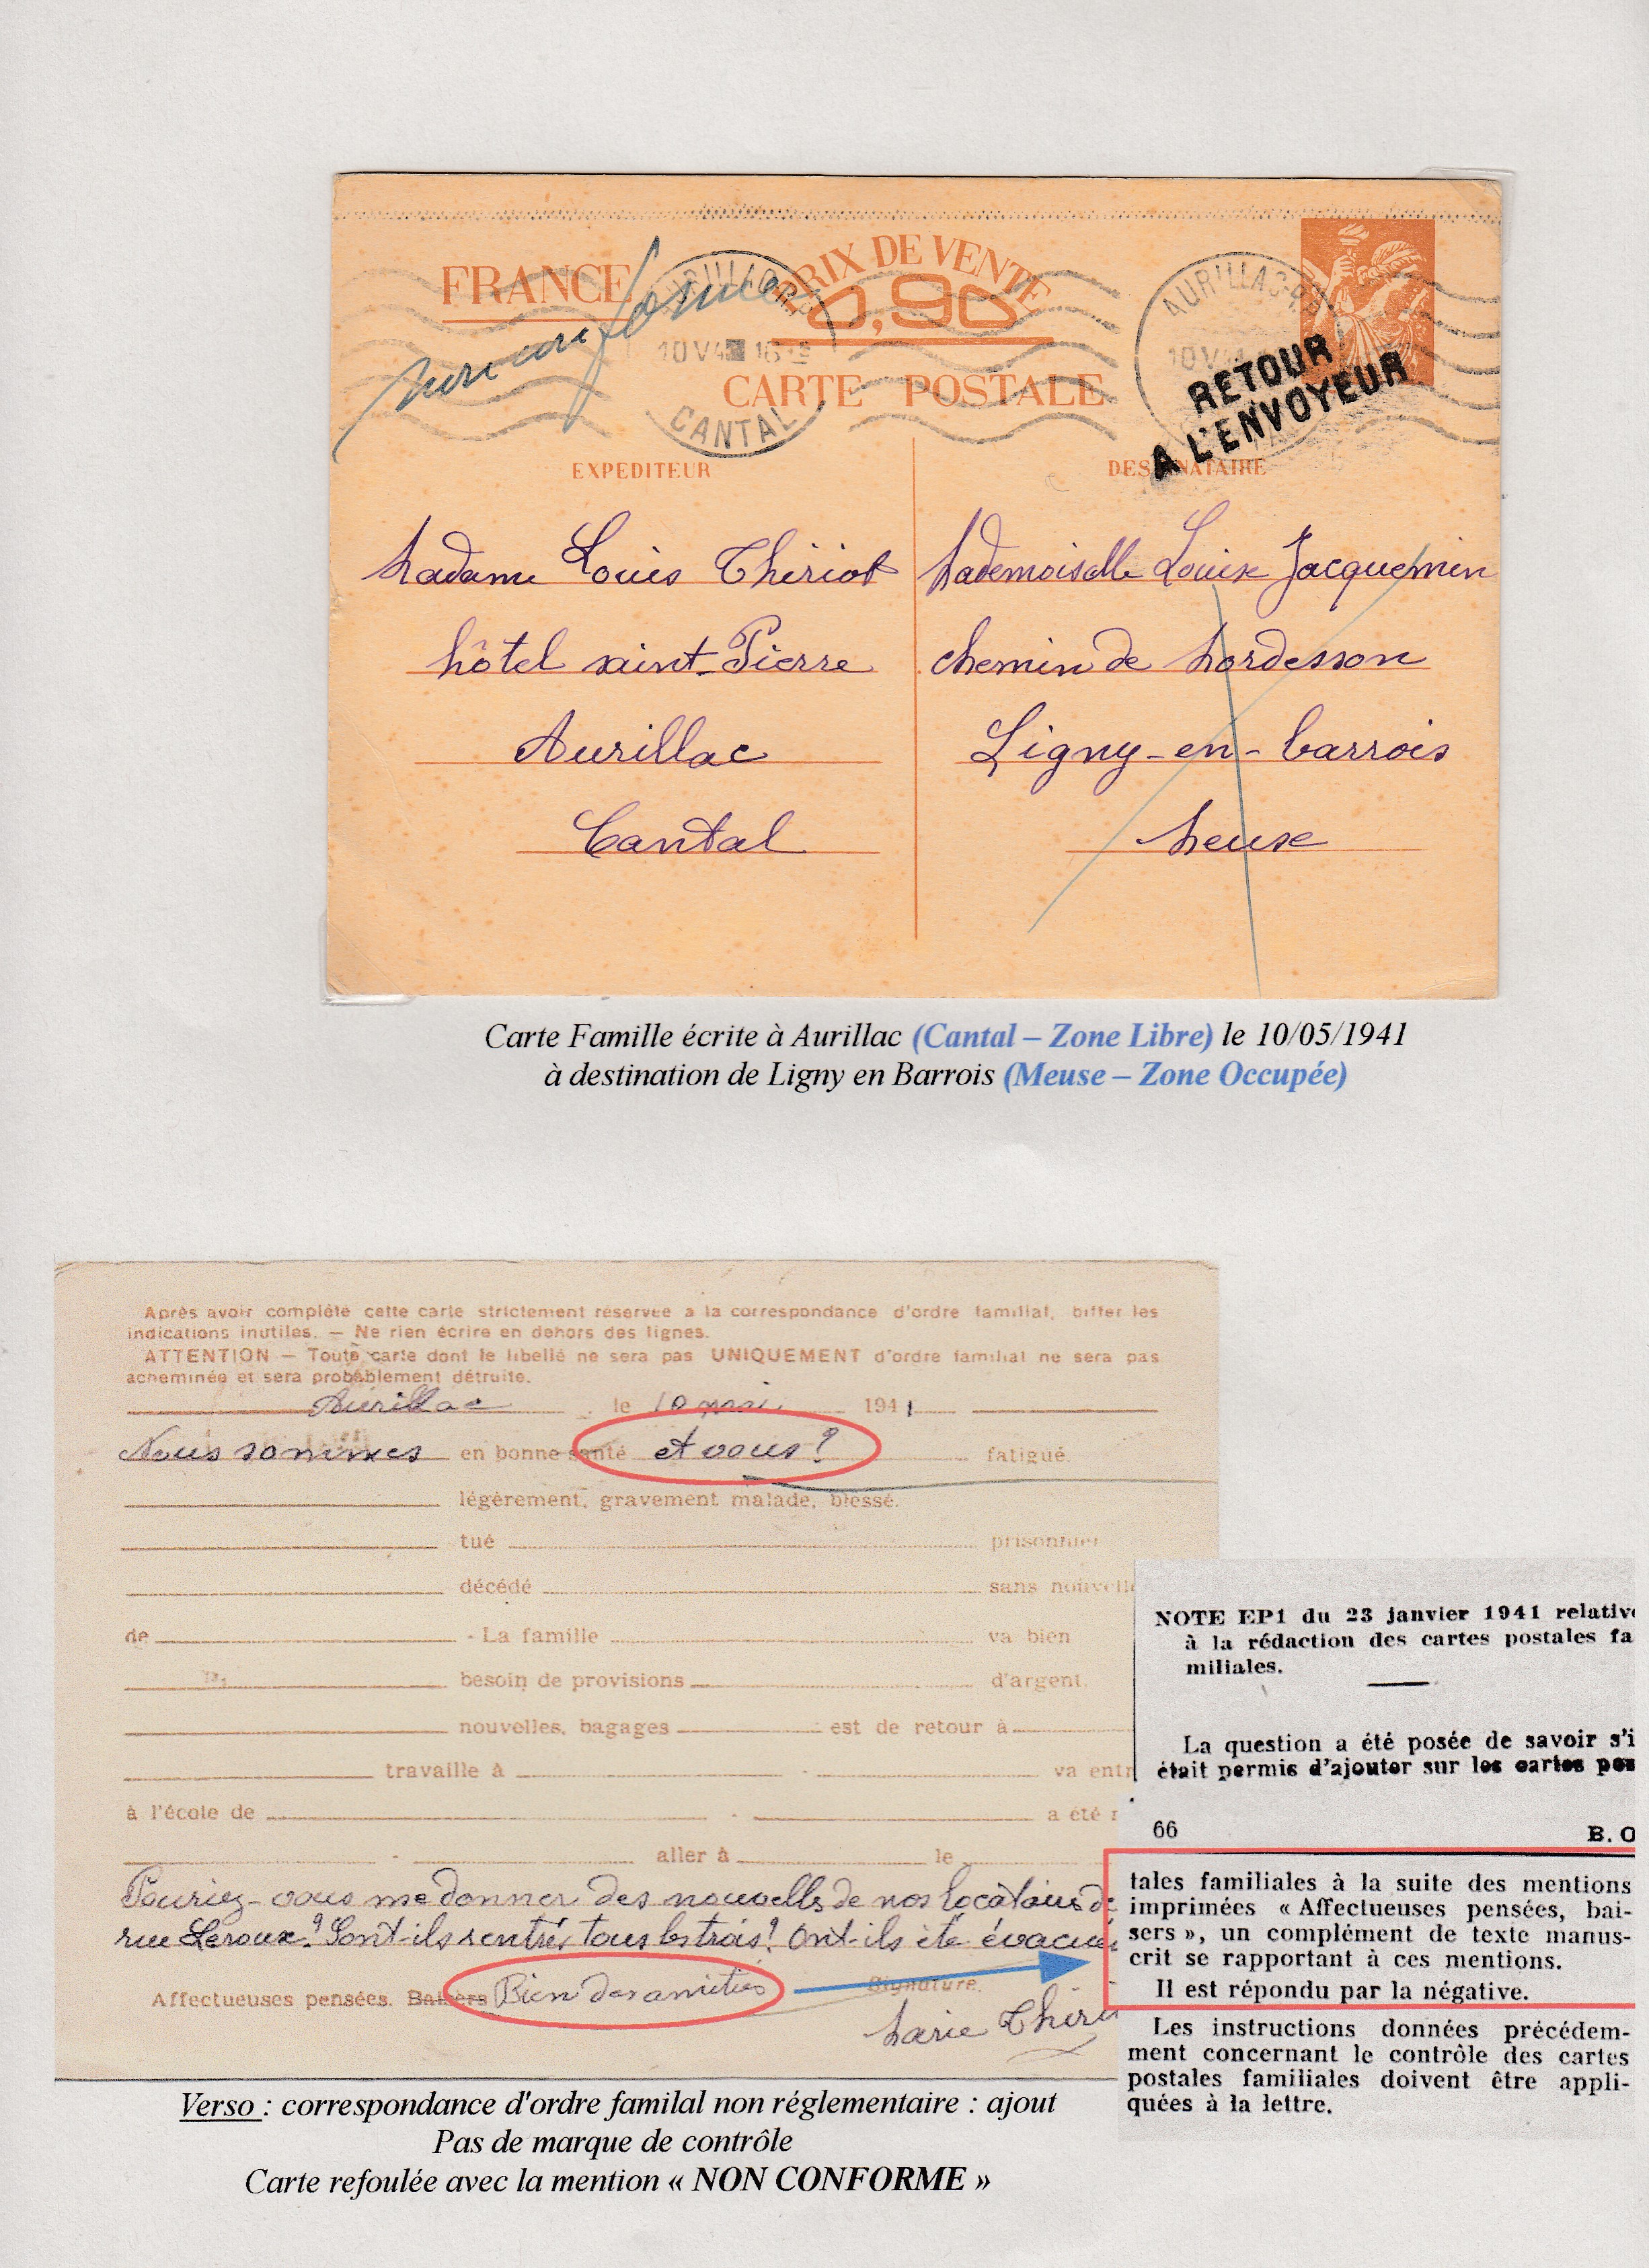 FRANCE
PRIX DE VENTE
0,90
CARTE POSTALE
non conforme
AURILLAC R.P.
10 V 41 16
CANTAL
AURILLAC R.P.
10 V
RETOUR
A L'ENVOYEUR
EXPEDITEUR
DESTINATAIRE
Madame Louis Thiriot
hôtel saint-Pierre
Aurillac
Cantal
Mademoiselle Louise Jacquemin
chemin de Mordesson
Ligny-en-barrois
Meuse
Carte Famille écrite à Aurillac (Cantal – Zone Libre) le 10/05/1941
à destination de Ligny en Barrois (Meuse – Zone Occupée)
Après avoir complété cette carte strictement réservée à la correspondance d'ordre familial, biffer les
indications inutiles. — Ne rien écrire en dehors des lignes.
ATTENTION — Toute carte dont le libellé ne sera pas UNIQUEMENT d'ordre familial ne sera pas
acheminée et sera probablement détruite.
Aurillac le 10 mai 1941
Nous sommes en bonne santé et vous? fatigué.
légèrement, gravement malade, blessé.
tué prisonnier
décédé sans nouvelle
de - La famille va bien
besoin de provisions d'argent.
nouvelles, bagages est de retour à
travaille à va entr
à l'école de a été r
aller à le
Pouriez-vous me donner des nouvelles de nos locataires de
rue Leroux? Sont-ils rentrés tous les trois? Ont-ils été évacués
Affectueuses pensées. Baisers Bien des amitiés Signature.
Marie Thiri
NOTE EP1 du 23 janvier 1941 relative
à la rédaction des cartes postales fa
miliales.
La question a été posée de savoir s'i
était permis d'ajouter sur les cartes pos
66 B. O
tales familiales à la suite des mentions
imprimées « Affectueuses pensées, bai-
sers », un complément de texte manus-
crit se rapportant à ces mentions.
Il est répondu par la négative.
Les instructions données précédem-
ment concernant le contrôle des cartes
postales familiales doivent être appli-
quées à la lettre.
Verso : correspondance d'ordre familal non réglementaire : ajout
Pas de marque de contrôle
Carte refoulée avec la mention « NON CONFORME »